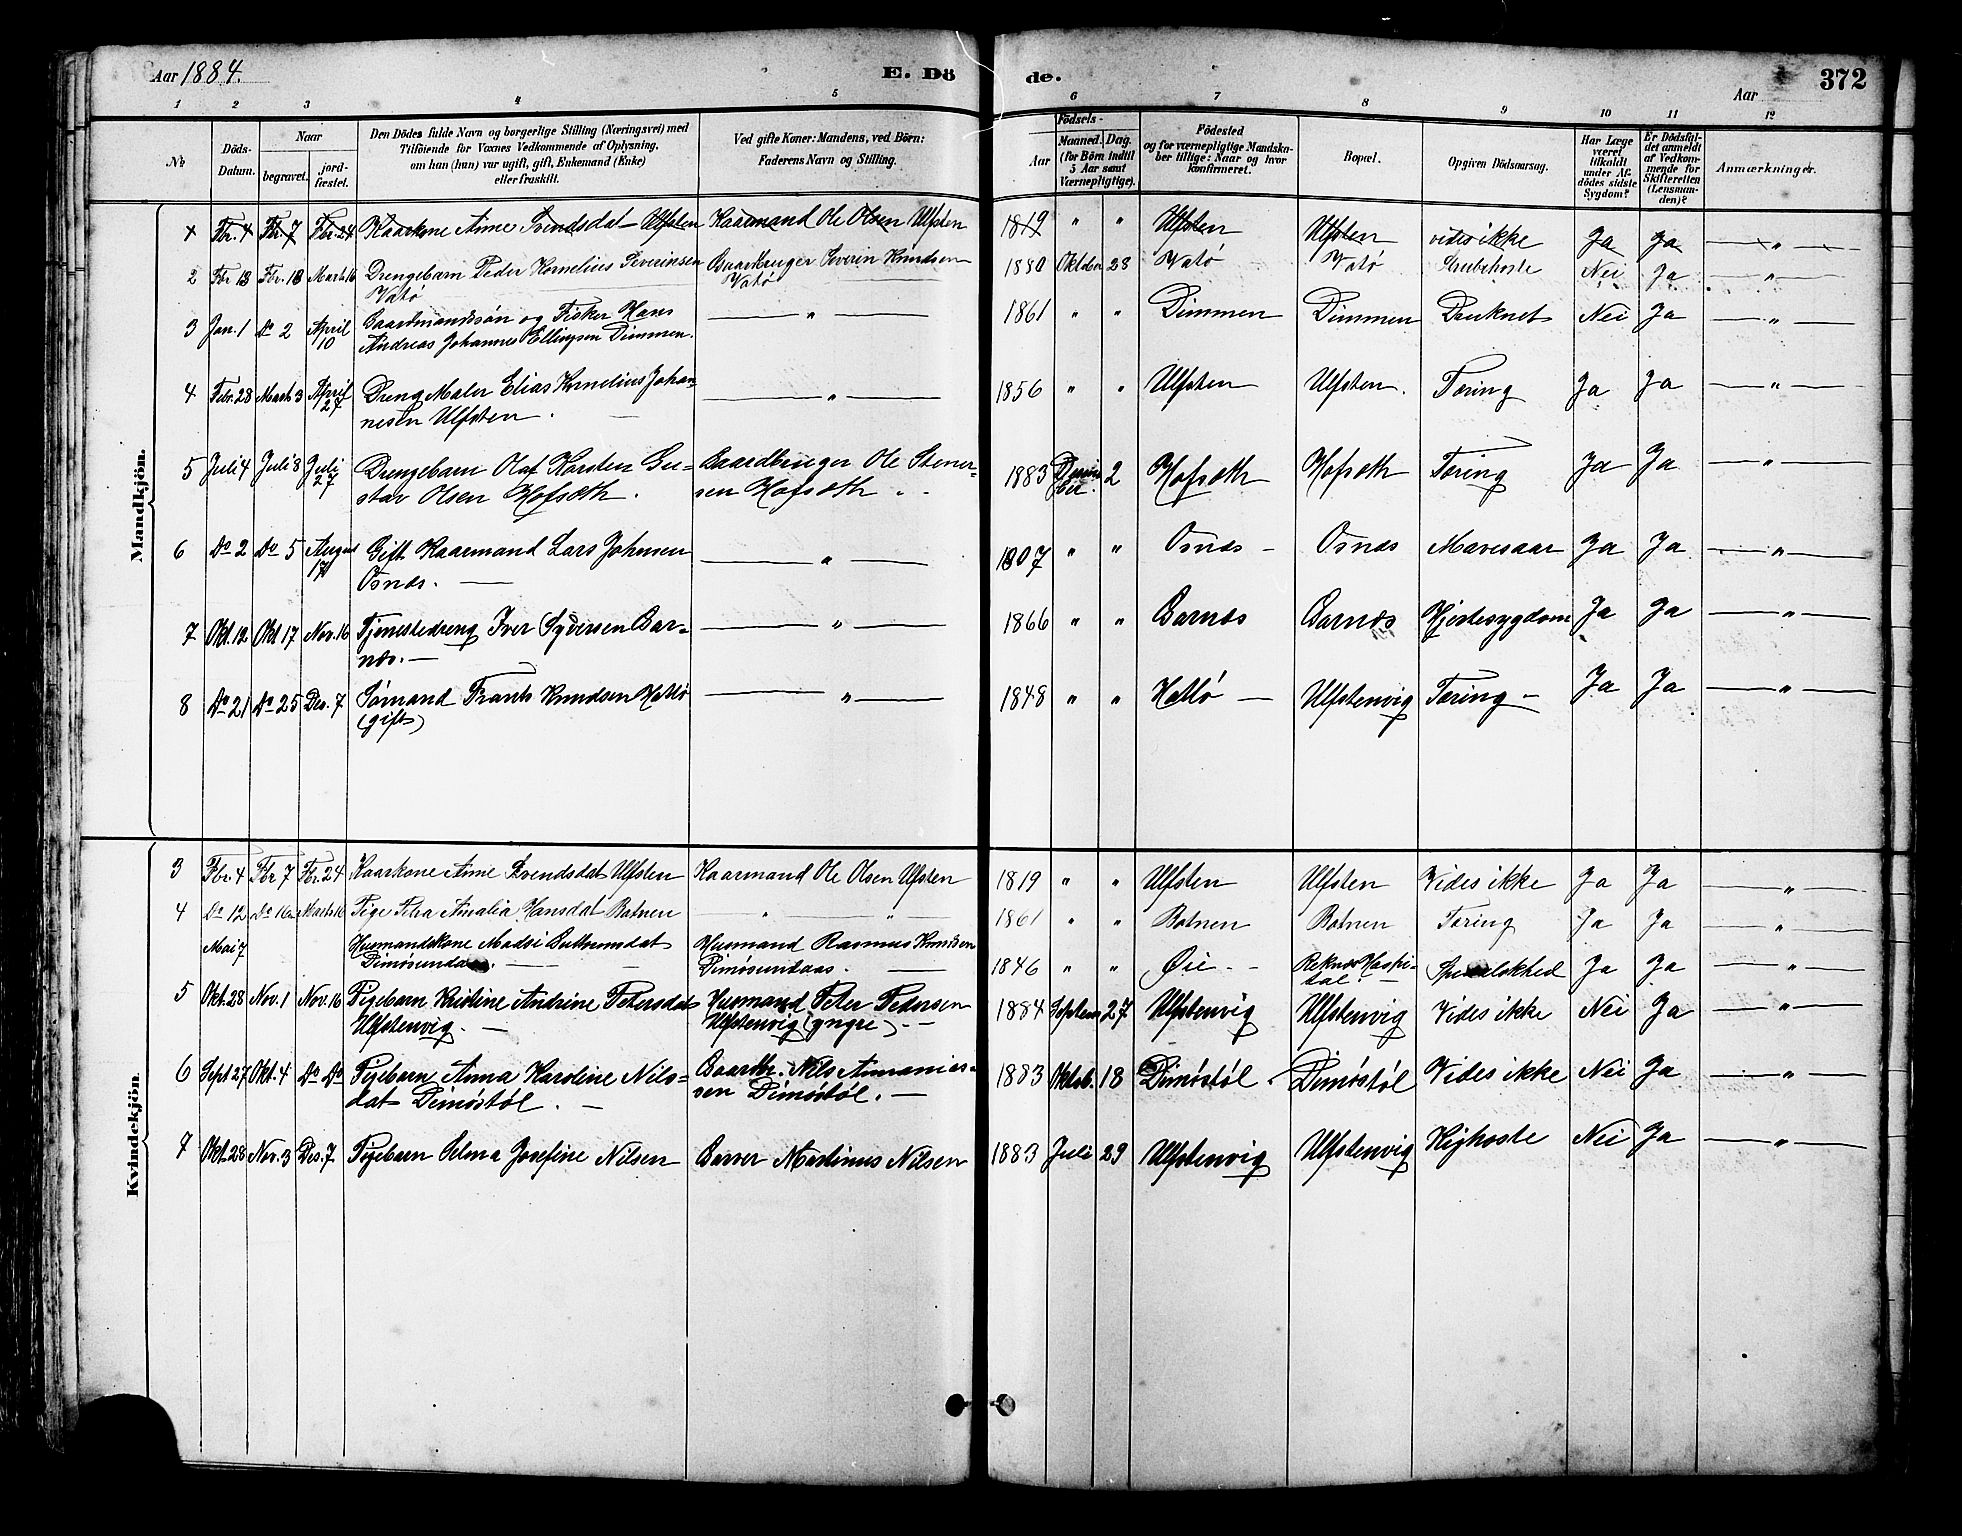 Aar 1884.
E. Dö
de.
Aar
372
1 2 3 4 5 6 7 8 9 10 11 12
No
Döds-Datum.
Naar
begravet.
jord-fæstet.
Den Dödes fulde Navn og borgerlige Stilling (Næringsvei) med
Tilföiende for Voxnes Vedkommende af Oplysning,
om han (hun) var ugift, gift, Enkemand (Enke)
eller fraskilt.
Ved gifte Koner: Mandens, ved Börn:
Faderens Navn og Stilling.
Födsels-
Aar
Maaned. Dag.
(for Börn indtil
5 Aar samt
Værnepligtige).
Födested
og for værnepligtige Mandska-
ber tillige: Naar og hvor
konfirmeret.
Bopæl.
Opgiven Dödsaarsag.
Har Læge
været
tilkaldt
under Af-
dödes sidste
Sygdom?
Er Dödsfal-
det anmeldt
af Vedkom-
mende for
Skifteretten
(Lensman-
den)?
Anmærkninger.
Mandkjön.
Fbr. 4 Fbr. 7 Fbr 24 Kaarkone Anne Svendsdat Ulfsten Kaarmand Ole Olsen Ulfsten 1819 " " Ulfsten Ulfsten vides ikke Ja Ja "
2 Fbr 13 Fbr. 18 Marts 16 Drengebarn Peder Kornelius Severinsen Gaardbruger Severin Knudsen 1880 Oktober 28 Vatö Vatö Strubehoste Nei Ja "
Vatö Vatö
3 Jan. 1 Do 2 April Gaardmandssön og Fisker Hans " 1861 " " Dimmen Dimmen Druknet Nei Ja "
10 Andreas Johannes Ellingsen Dimmen.
4 Febr. 28 Marts 3 April Dreng Maler Elias Kornelius Johan- " 1856 " " Ulfsten Ulfsten. Tæring Ja Ja "
27 nesen Ulfsten.
5 Juli 4 Juli 8 Juli Drengebarn Olaf Karsten Gu- Gaardbruger Ole Stener- 1883 2 Hofsæth Hofsæth Tæring Ja Ja "
27 stav Olsen Hofsæth. sen Hofsæth
6 Do 2 Do 5 August Gift Kaarmand Lars Johnsen " 1807 " " Osnæs Osnæs Mavesaar Ja Ja "
17 Osnæs.
7 Okt. 12 Okt 17 Nov. 16 Tjenestedreng Iver Syversen Gar- " 1866 " " Garnæs Garnæs Hjertesygdom Ja Ja "
næs.
8 Do 21 Do 25 Des. 7 Sömand Frants Knudsen Hatlö " 1848 " " Hatlö Ulfstenvig Tæring Ja Ja "
(gift)
Kvindekjön.
3 Fbr. 4 Fbr 7 Fbr. 24 Kaarkone Anne Svendsdat Ulfsten Kaarmand Ole Olsen Ulfsten 1819 " " Ulfsten Ulfsten Vides ikke Ja Ja "
4 Do 12 Do 16 Marts 16 Pige Petra Amalia Hansdat Botnen " " 1861 " " Botnen Botnen Tæring Ja Ja "
Mai 7 Husmandskone Madsi Guttormsdat Husmand Rasmus Knudsen 1846 " " Øie Reknæs Hospi- Spedalskhed Ja Ja "
Dimösundaas. Dimösundaas. tal.
5 Okt. 28 Nov. 1 Nov. 16 Pigebarn Kristine Andrine Petersdat Husmand Peter Pedersen 1884 Septem 27 Ulfstenvig Ulfstenvig Vides ikke Nei Ja "
Ulfstenvig. Ulfstenvig (yngre).
6 Sept 27 Okt. 4 Do Do Pigebarn Anna Karoline Nils- Gaardbr. Nils Annanias- 1883 Oktob. 18 Dimöstöl Dimöstöl Vides ikke Nei Ja "
dat Dimöstöl. sen Dimöstöl.
7 Okt. 28 Nov. 3 Des. 7 Pigebarn Selma Josefine Nilsen Garver Martinus Nilsen 1883 Juli 29 Ulfstenvig Ulfstenvig Kighoste Nei Ja "